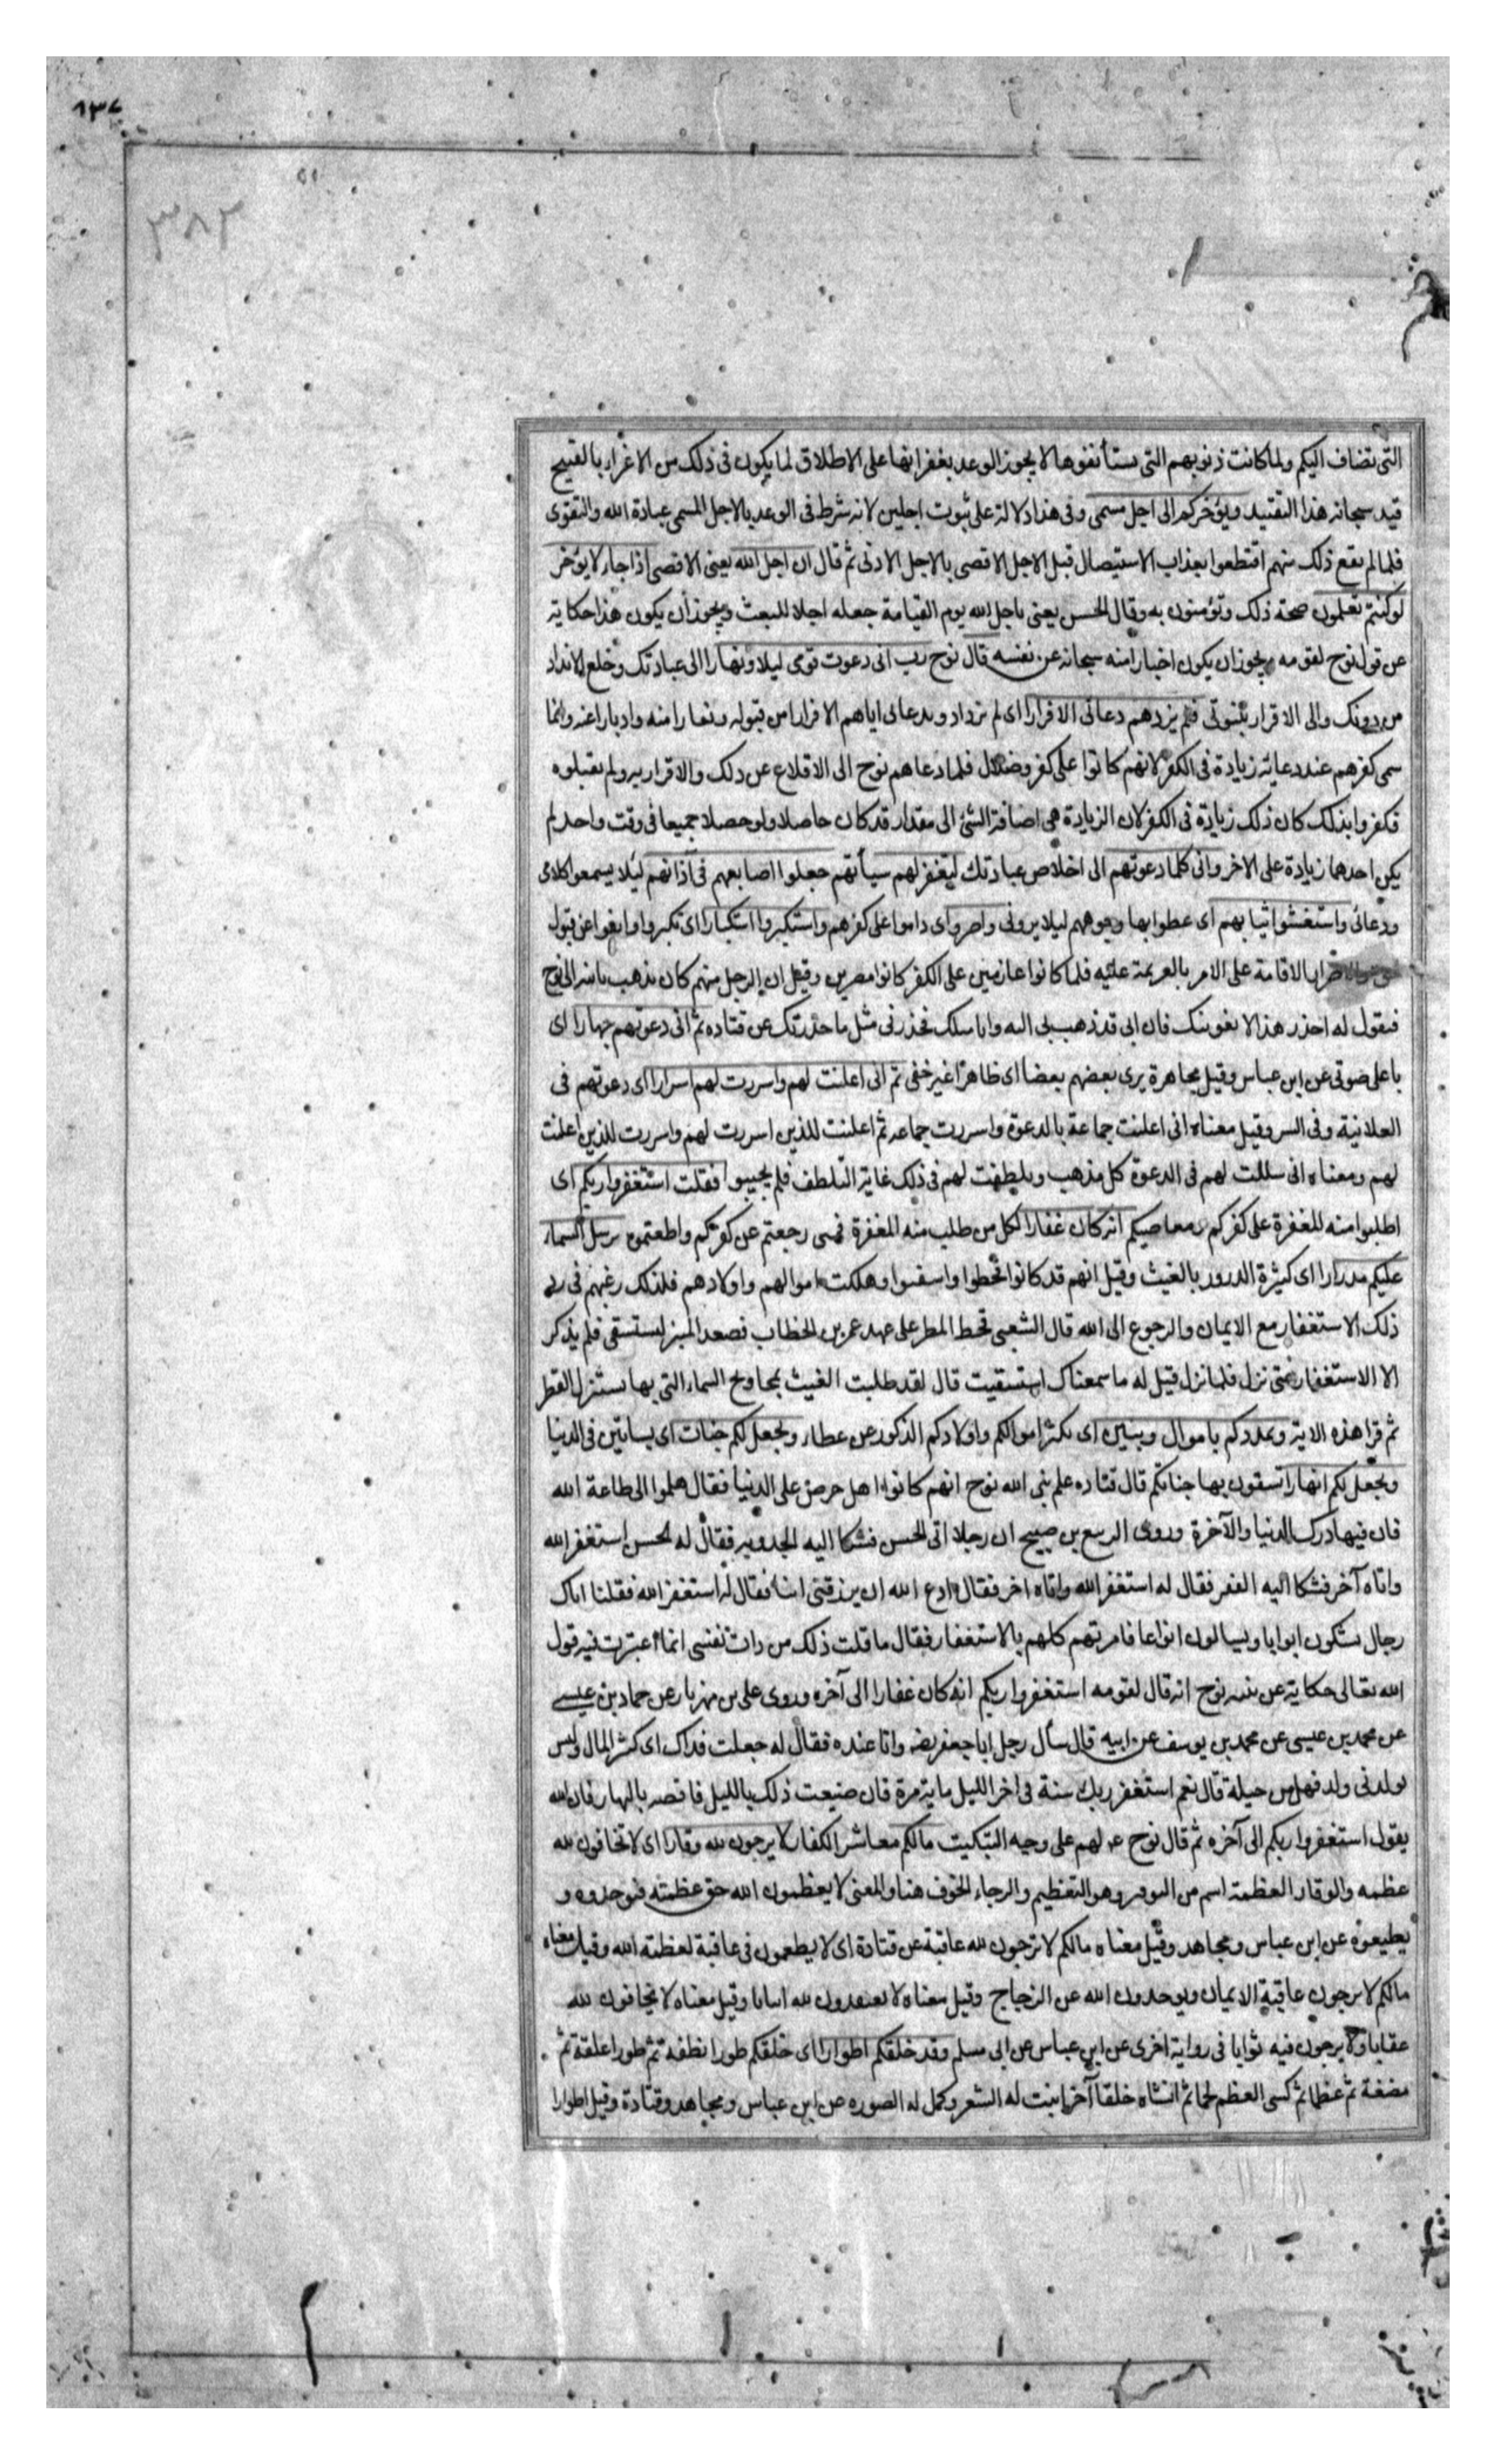 ١٣٧
٣٨٣
التى تضاف اليكم ولما كانت ذنوبهم التى يستأنفونها لا يجوز الوعد بغفرانها على الاطلاق لما يكون فى ذلك من الاغراء بالقبيح
قيد سبحانه هذا التقييد ويؤخركم الى اجل مسمى وفى هذا دلالة على ثبوت اجلين لانه شرط فى الوعد بالاجل المسمى عبادة الله والتقوى
فلما لم يقع ذلك منهم اقتطعوا بعذاب الاستيصال قبل الاجل الاقصى بالاجل الادنى ثم قال ان اجل الله يعنى الاقصى اذا جاء لا يؤخر
لو كنتم تعلمون صحة ذلك وتؤمنون به وقال الحسن يعنى باجل الله يوم القيامة جعله اجلا للبعث ويجوز أن يكون هذا حكاية
عن قول نوح لقومه ويجوز ان يكون اخبارا منه سبحانه عن نفسه قال نوح رب انى دعوت قومى ليلا ونهارا الى عبادتك وخلع الانداد
من دونك والى الاقرار بنبوتى فلم يزدهم دعائى الا فرارا اى لم يزداد وبدعائى اياهم الا فرارا من قبوله ونفارا منه وادبارا عنه وانما
سمى كفرهم عند دعائه زيادة فى الكفر لانهم كانوا على كفر وضلال فلما دعاهم نوح الى الاقلاع عن ذلك والاقرار به ولم يقبلوه
فكفروا بذلك كان ذلك زيادة فى الكفر لان الزيادة هى اضافة الشئ الى مقدار قد كان حاصلا ولو حصلا جميعا فى وقت واحد لم
يكن احدهما زيادة على الاخر وانى كلما دعوتهم الى اخلاص عبادتك ليغفر لهم سيأتهم جعلوا اصابعهم فى آذانهم ليلا يسمعوا كلامى
ودعائى واستغشوا ثيابهم اى غطوا بها وجوههم ليلا يرونى واصروا اى داموا على كفرهم واستكبروا استكبارا اى تكبروا وانفوا عن قبول
الاصرار الاقامة على الامر بالعزيمة عليه فلما كانوا عازمين على الكفر كانوا مصرين وقيل ان الرجل منهم كان يذهب بابنه الى نوح
فيقول له احذر هذا لا يغوينك فان ابى قد ذهب بى اليه وانا مثلك فحذرنى مثل ما حذرتك عن قتاده ثم انى دعوتهم جهارا اى
باعلى صوتى عن ابن عباس وقيل مجاهرة يرى بعضهم بعضا اى ظاهرا غير خفى ثم انى اعلنت لهم واسررت لهم اسرارا اى دعوتهم فى
العلانية وفى السر وقيل معناه انى اعلنت جماعة بالدعوة واسررت جماعه ثم اعلنت للذين اسررت لهم واسررت للذين اعلنت
لهم ومعناه انى سلكت لهم فى الدعوة كل مذهب وتلطفت لهم فى ذلك غاية التلطف فلم يجيبوا فقلت استغفروا ربكم اى
اطلبوا منه المغفرة على كفركم ومعاصيكم انه كان غفارا لكل من طلب منه المغفرة فمتى رجعتم عن كفركم واطعتموه يرسل السماء
عليكم مدرارا اى كثيرة الدرور بالغيث وقيل انهم قد كانوا قحطوا واسنتوا وهلكت اموالهم واولادهم فلذلك رغبهم فى رد
ذلك الاستغفار مع الايمان والرجوع الى الله قال الشعبى قحط المطر على عهد عمر بن الخطاب فصعد المنبر ليستسقى فلم يذكر
الا الاستغفار حتى نزل فلما نزل قيل له ما سمعناك استسقيت قال لقد طلبت الغيث بمجاديح السماء التى بها يستنزل القطر
ثم قرا هذه الاية ويمددكم باموال وبنين اى يكثر اموالكم واولادكم الذكور عن عطاء ويجعل لكم جنات اى بساتين فى الدنيا
ويجعل لكم انهارا تسقون بها جناتكم قال قتاده علم نبى الله نوح انهم كانوا اهل حرص على الدنيا فقال هلموا الى طاعة الله
فان فيها درك الدنيا والآخرة وروى الربيع بن صبيح ان رجلا اتى الحسن فشكا اليه الجدوبة فقال له الحسن استغفر الله
واتاه آخر فشكا اليه الفقر فقال له استغفر الله واتاه اخر فقال ادع الله ان يرزقنى ابنا فقال له استغفر الله فقلنا اتاك
رجال يشكون ابوابا ويسالون انواعا فامرتهم كلهم بالاستغفار فقال ما قلت ذلك من ذات نفسى انما اعتبرت فيه قول
الله تعالى حكاية عن نبيه نوح انه قال لقومه استغفروا ربكم انه كان غفارا الى آخره وروى على بن مهزيار عن حماد بن عيسى
عن محمد بن عيسى عن محمد بن يوسف عن ابيه قال سأل رجل ابا جعفر وانا عنده فقال له جعلت فداك اى كثير المال وليس
يولد لى ولد فهل من حيلة قال نعم استغفر ربك سنة فى اخر الليل ماية مرة فان ضيعت ذلك بالليل فاقضه بالنهار فان الله
يقول استغفروا ربكم الى آخره ثم قال نوح ع لهم على وجه التبكيت مالكم معاشر الكفار لا يرجون لله وقارا اى لا تخافون لله
عظمه والوقار العظمة اسم من التوقير وهو التعظيم والرجاء الخوف هنا والمعنى لا يعظمون الله حق عظمته فتوحدوه و
يطيعوه عن ابن عباس ومجاهد وقيل معناه مالكم لا ترجون لله عاقبة عن قتادة اى لا يطمعون فى عاقبة لعظمة الله وقيل معناه
مالكم لا يرجون عاقبة الايمان ويوحدون الله عن الزجاج وقيل معناه لا تعتقدون لله اثباتا وقيل معناه لا يخافون لله
عقابا ولا يرجون فيه ثوابا فى رواية اخرى عن ابن عباس عن ابى مسلم وقد خلقكم اطوارا اى خلقكم طورا نطفه ثم طورا علقة ثم
مضغة ثم عظاما ثم كسى العظم لحما ثم انشاه خلقا آخر انبت له الشعر وكمل له الصوره عن ابن عباس ومجاهد وقتادة وقيل اطوارا